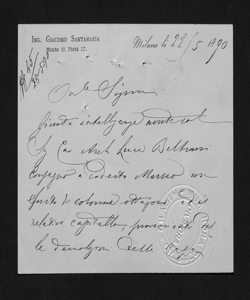 Ing. Giacomo Santamaria
Monte di Pietà 17.
Milano li 22/5 1890
On.le Signor
Giusta intelligenze avute col
Sig Cav Arch Luca Beltrami
consegno a codesto Museo un
fusto di colonna ottagona ed il
relativo capitello, provenienti dal
le demolizioni delle case